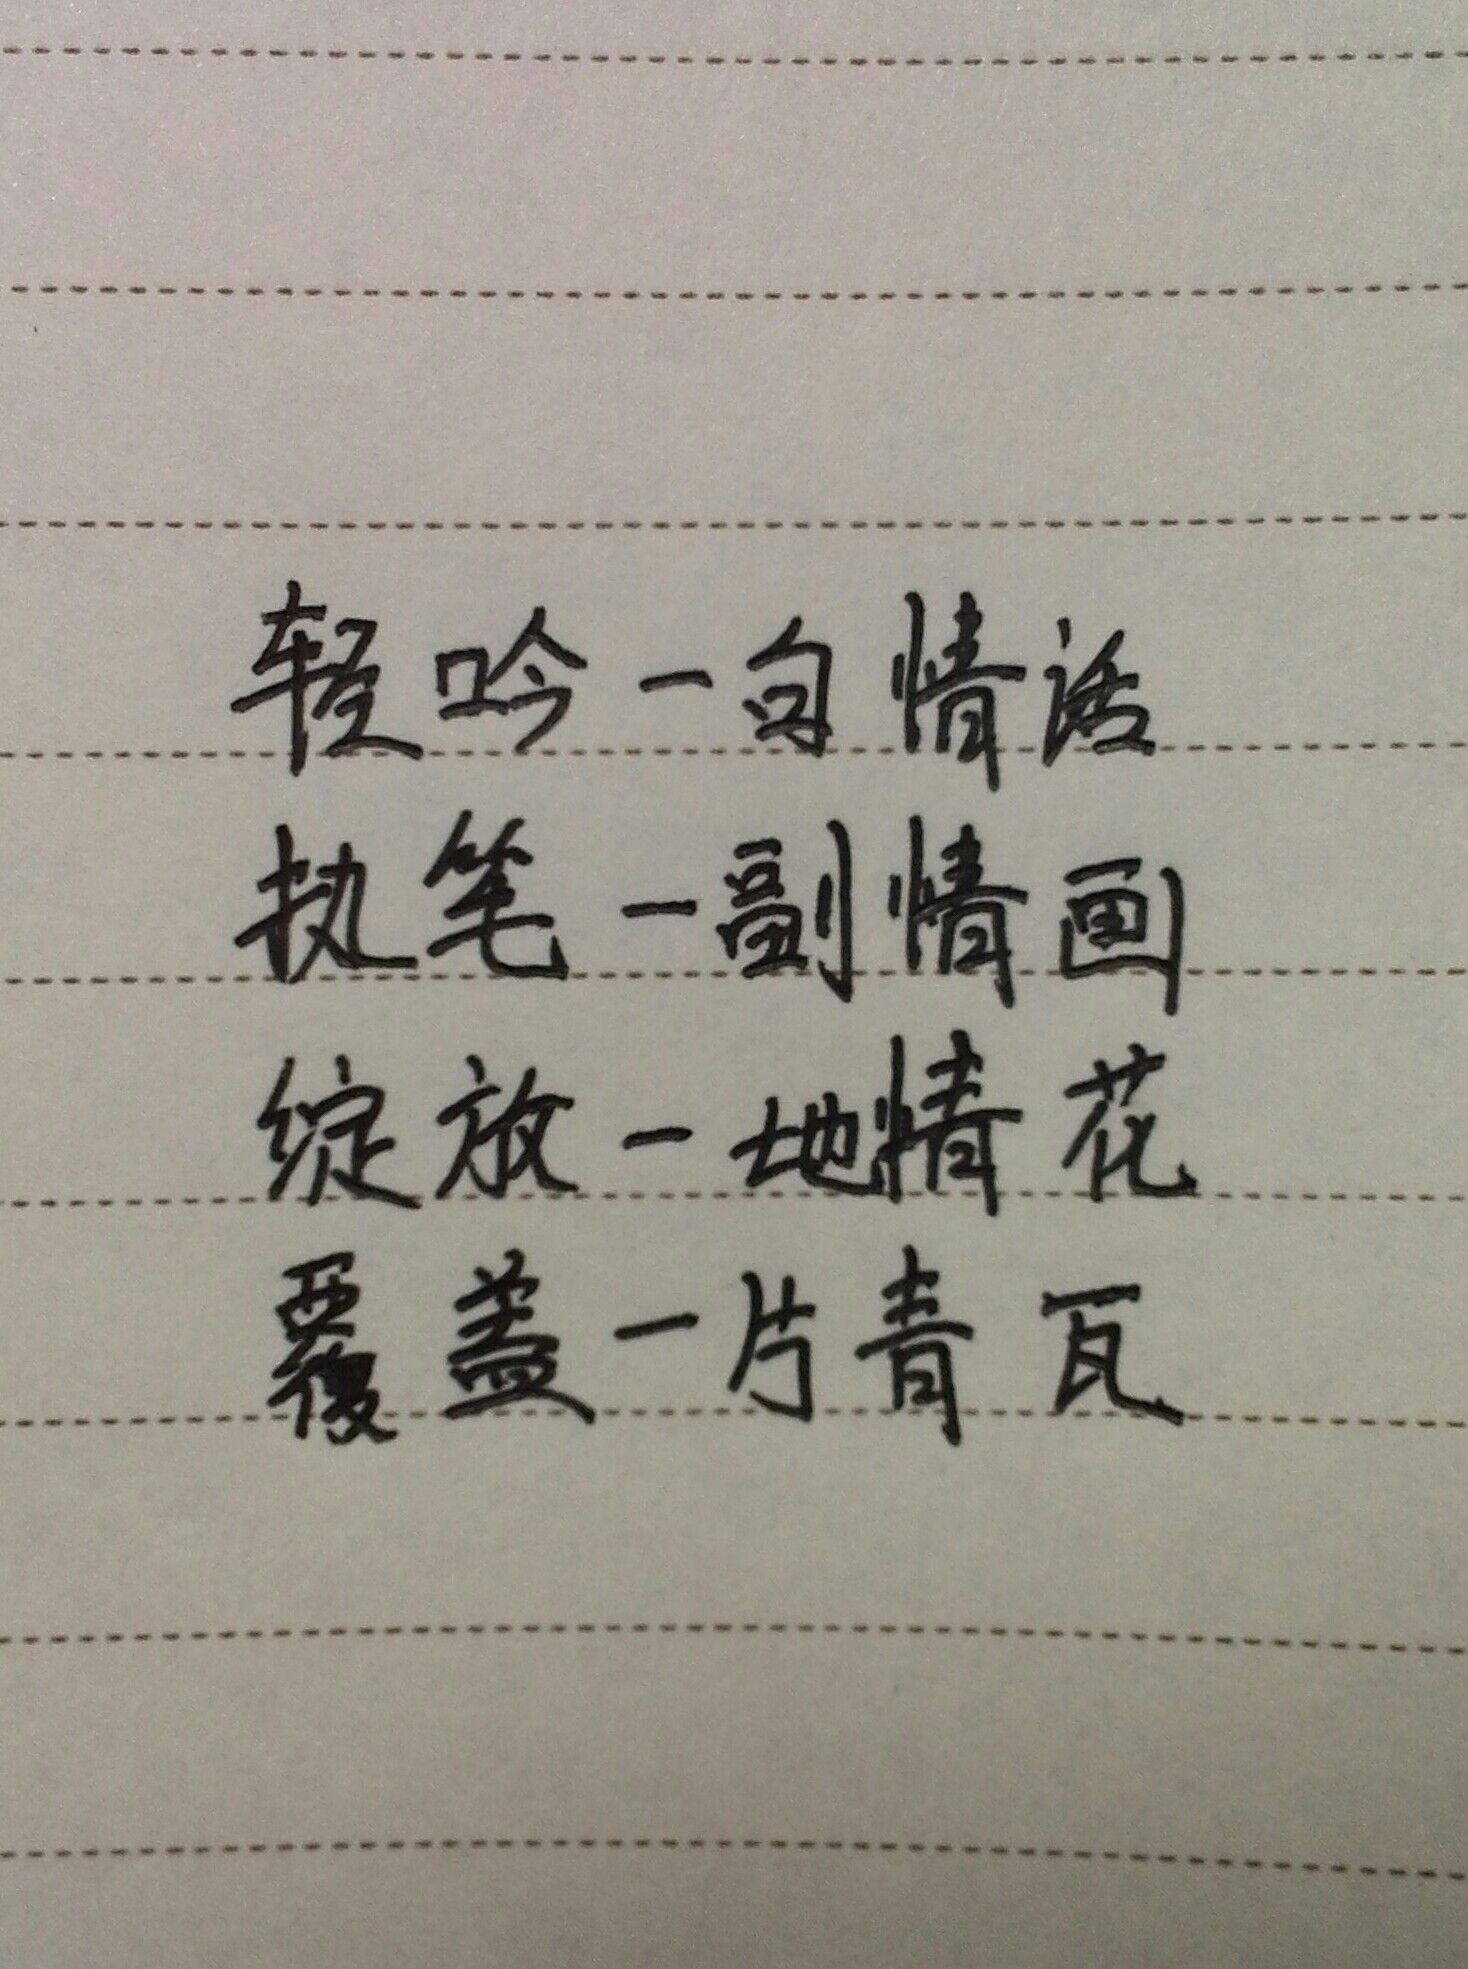 轻吟一句情话
执笔一副情画
绽放一地情花
覆盖一片青瓦